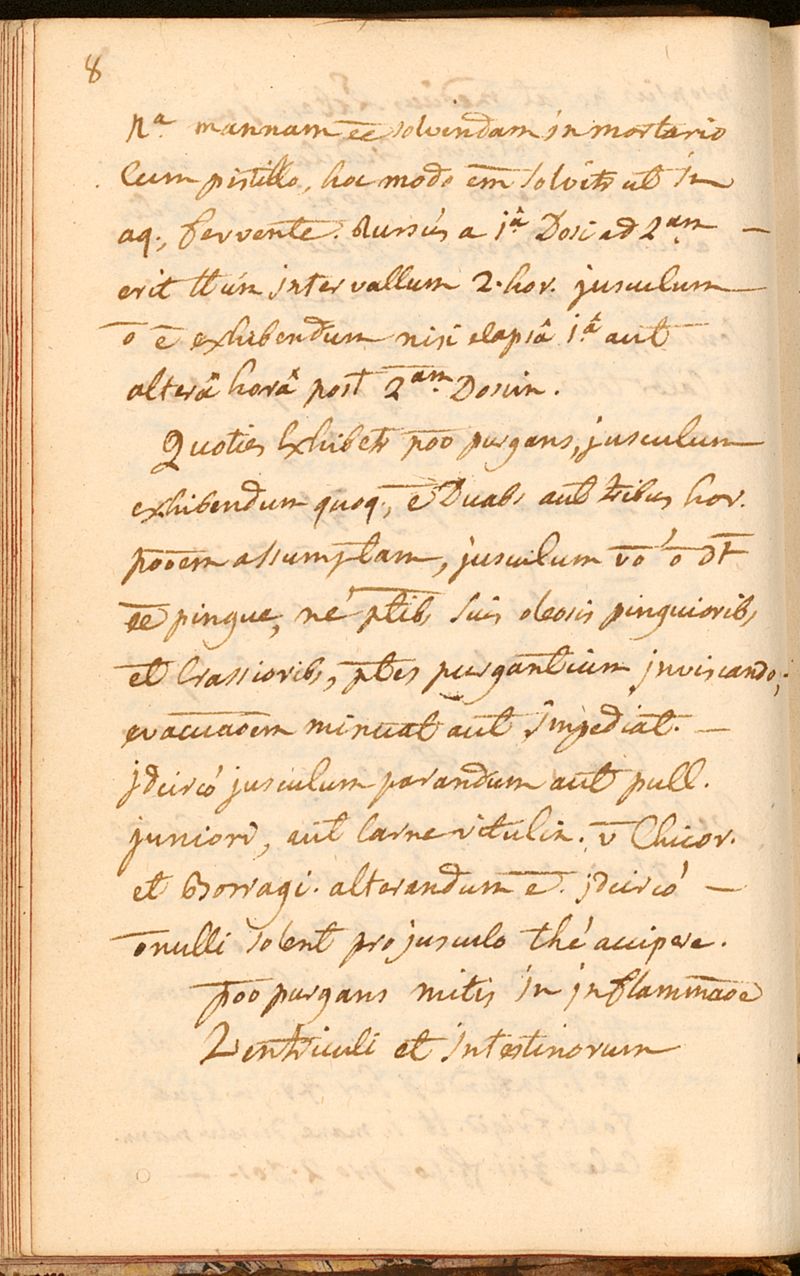 8
Nª mannam ēē solvendam in mortario
Cum pistillo, hoc modo em̄ solvitr ut in
aq;, fervente. Rursus a 1â Dosi ad 2am —
erit ttum intervallum 2. hor. jusculum —
ō ē exhibendum nisi elapsâ 1â aut
alterâ horâ post 2am Dosim.
Quoties Exhibetr p̄oo purgans, jusculum
exhibendum quoq;, ē Duabs aut tribus hor.
p̄ooem assumptam, jusculum v̄o ō d̄t
ēē pingue, ne p̄tib, suis oleosis pinguiorib,
et Crassiorib, p̄tes purgantium inviscando;
evacuaōem minuat aut impediat. —
jdcircó jusculum parandum aut pull.
juniori, aut Carne vitulin. v̄ Chicor.
et Borragi. alterandum ē. jdcircó —
ōnulli solent pro jusculo thé accipere.
p̄oo purgans mitis in jnflammāoe
Ventriculi et intestinorum